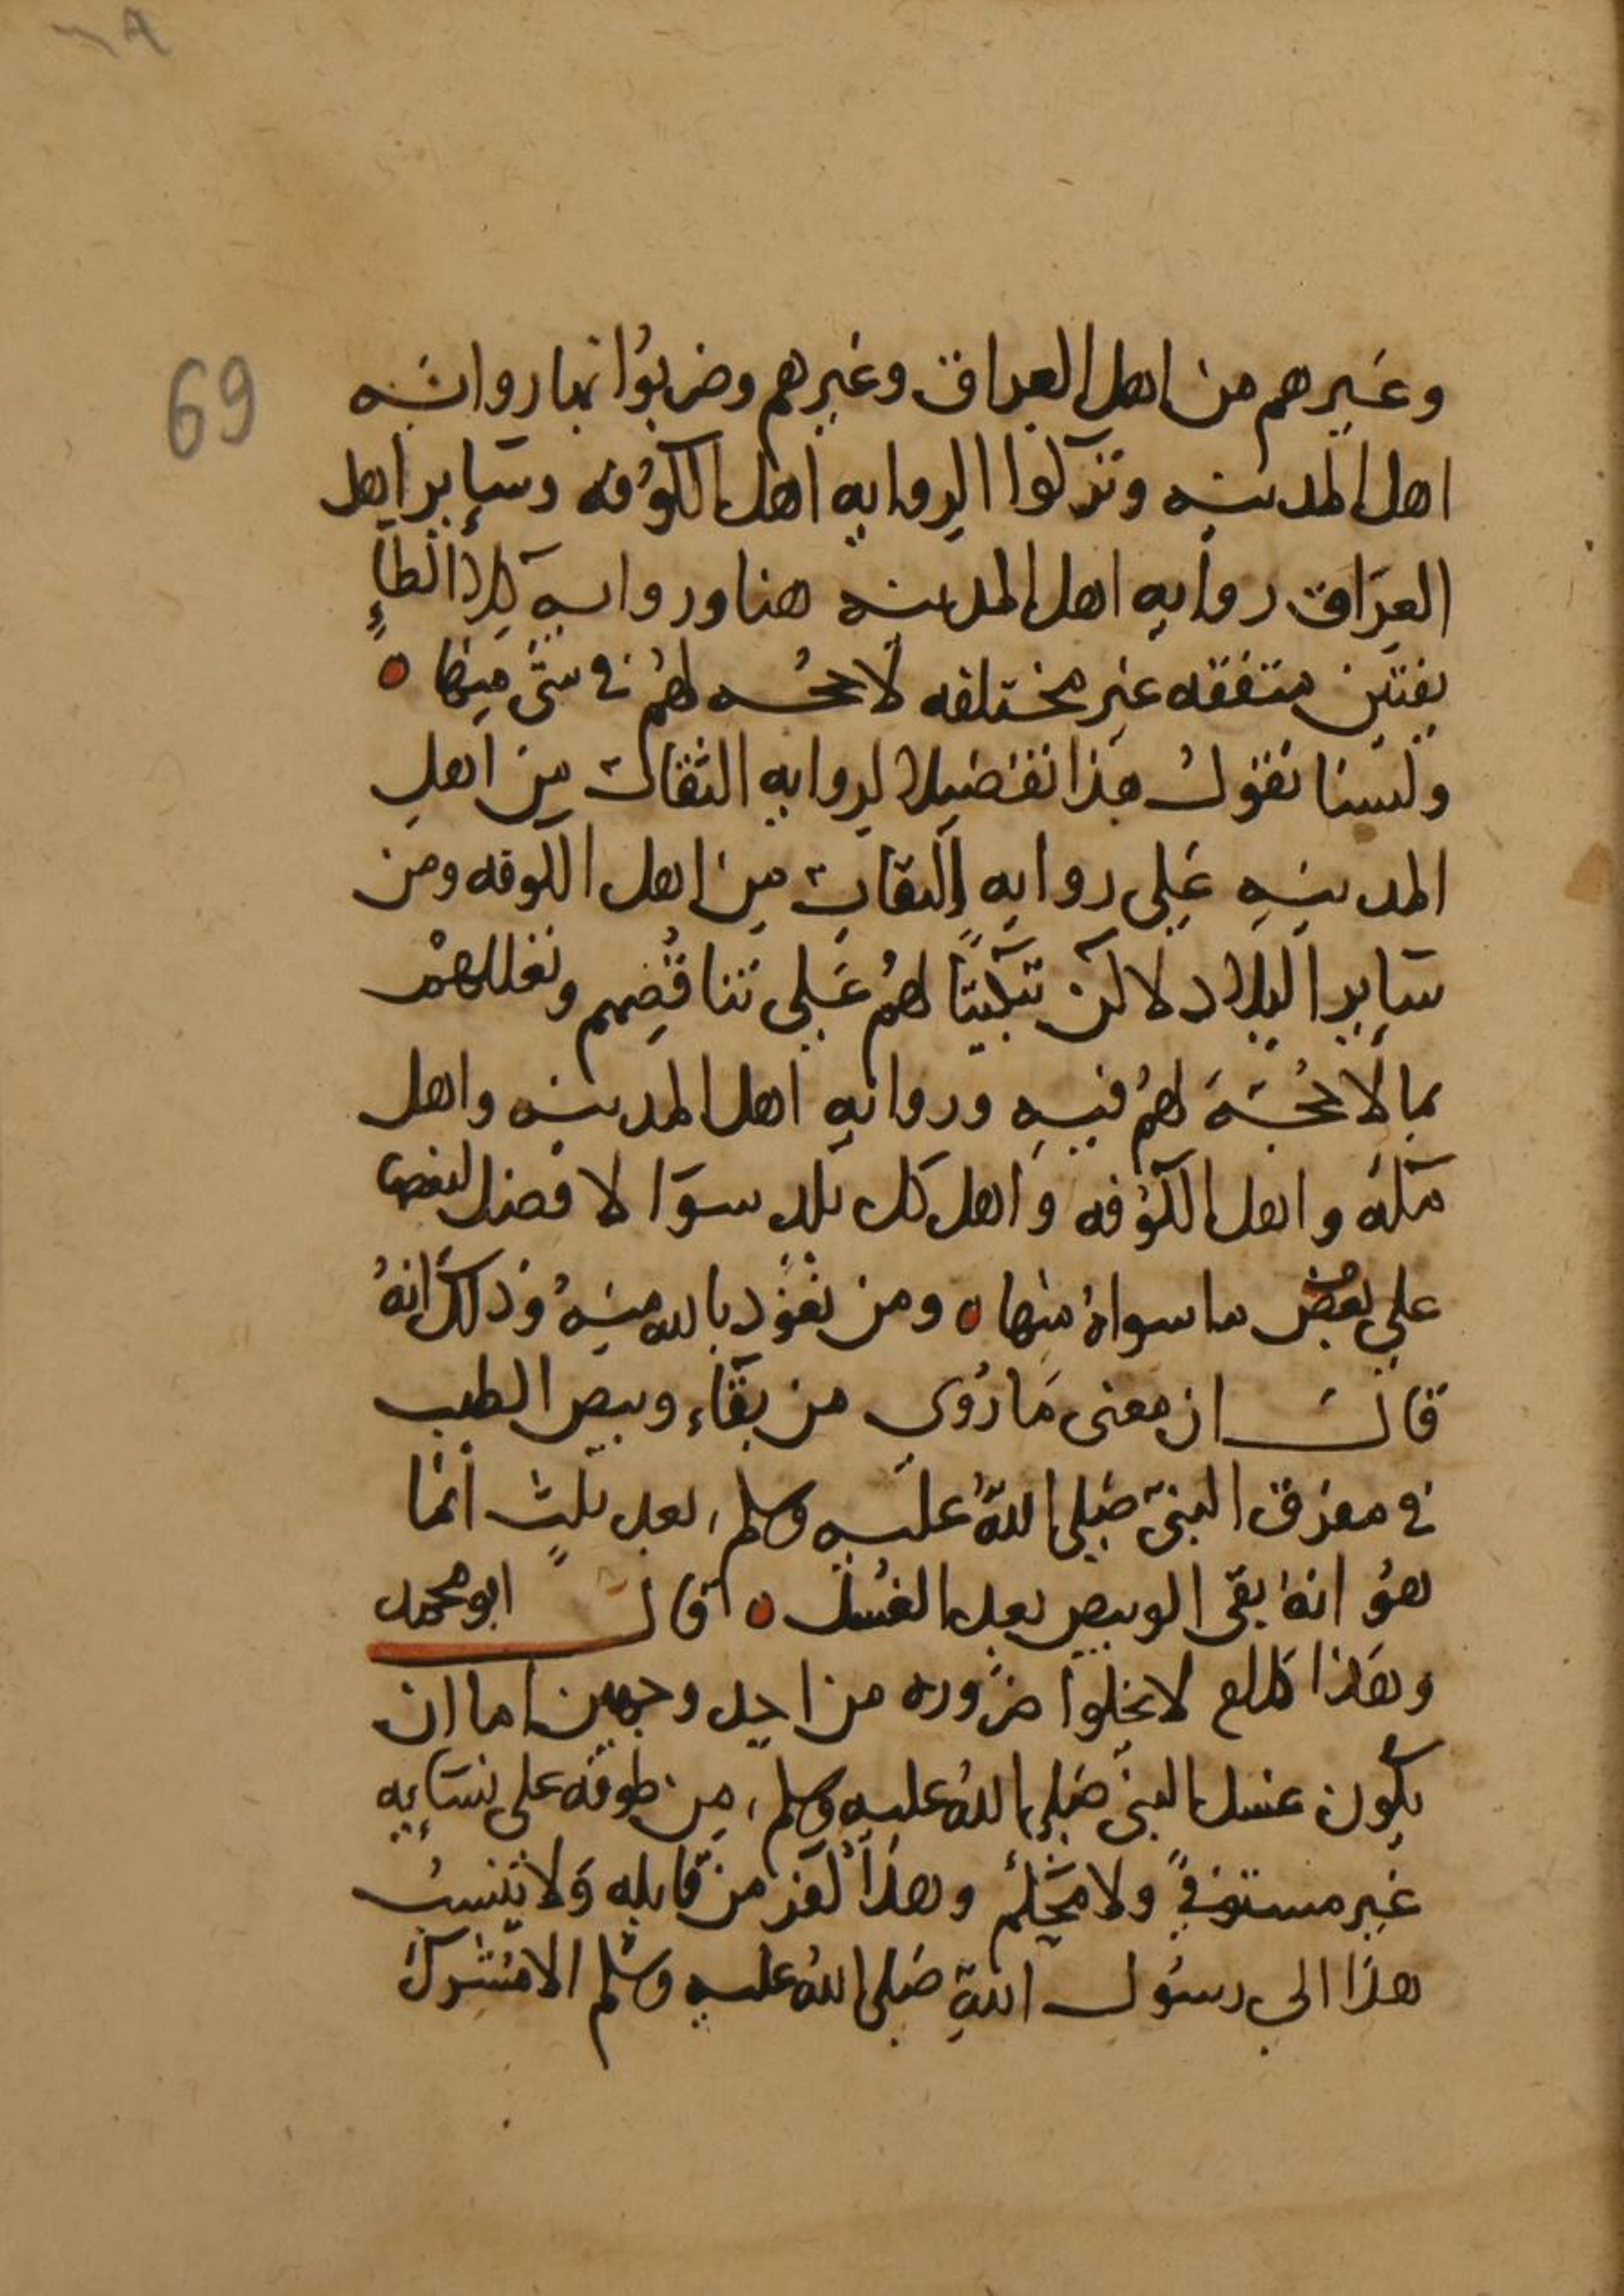 69
وغيرهم من اهل العراق وغيرهم وضربوا بها رواية
اهل المدينه وتركوا الروايه اهل الكوفه وسائر اهل
العراق روايه اهل المدينه هنا ورواية
متفقه غير مختلفه لا حجه لهم في شئ منها ه
ولسنا نقول هذا تفضيلا لروايه الثقات من اهل
المدينه على روايه الثقات من اهل الكوفه ومن
سائر البلاد لا لكن تبكيتًا لهم على تناقضهم وتعللهم
بما لا حُجّة لهم فيه وروايه اهل المدينه واهل
مكه واهل الكوفه واهل كل بلد سوا لا فضل لبعضها
على بعض ما سواهُ منها ه ومن نعوذ بالله منهُ وذلك انهُ
قال ان معنى ما رُوي من بقاء وبيص الطيب
في مفرق النبيّ صلى اللهُ عليه وسلم بعد ثلثٍ انما
هوُ انهُ بقى الوبيص بعد الغُسل ه قال ابو محمد
وهذا لا يخلوا ضروره من احد وجهين اما ان
يكون غسل النبي صلى اللهُ عليه وسلم من طوفه على نسايه
غير مستوفي ولا محكم وهذا كفر من قايله ولا ينسبُ
هذا الى رسول اللهِ صلى اللهُ عليه وسلم الا مُشرك